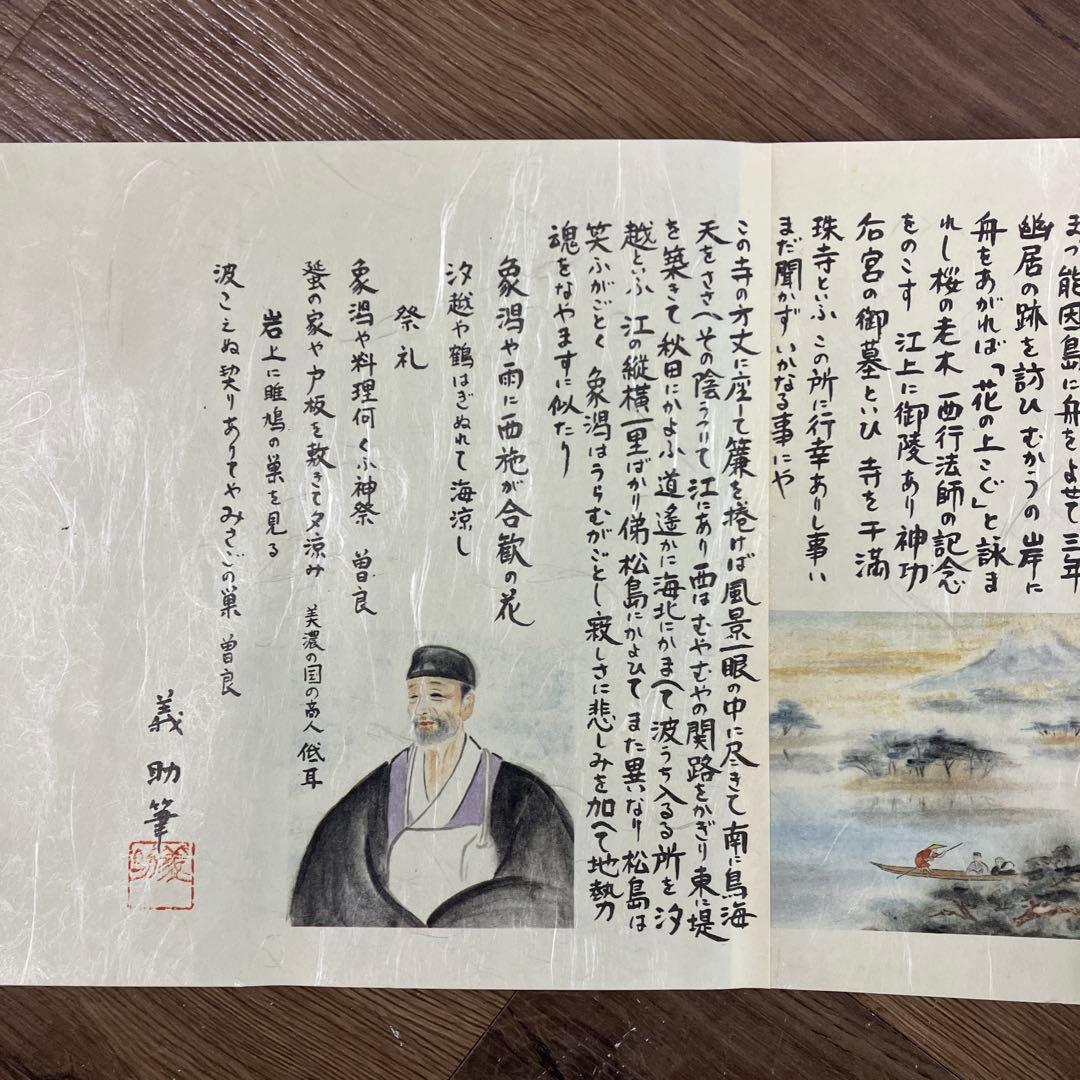 まづ能因島に舟をよせて三年
幽居の跡を訪ひむかうの岸に
舟をあがれば「花の上こぐ」と詠ま
れし桜の老木 西行法師の記念
をのこす 江上に御陵あり 神功
后宮の御墓といひ 寺を干満
珠寺といふ この所に行幸ありし事い
まだ聞かず いかなる事にや
この寺の方丈に座して簾を捲けば風景一眼の中に尽きて 南に鳥海
天をささへ その陰うつりて江にあり 西はむやむやの関路をかぎり 東に堤
を築きて秋田にかよふ道遙かに 海北にかまへて波うち入るる所を汐
越といふ 江の縦横一里ばかり 俤松島にかよひて また異なり 松島は
笑ふがごとく 象潟はうらむがごとし 寂しさに悲しみを加へて 地勢
魂をなやますに似たり
象潟や雨に西施が合歓の花
汐越や鶴はぎぬれて海涼し
祭礼
象潟や料理何くふ神祭 曽良
蜑の家や戸板を敷きて夕涼み 美濃の国の商人 低耳
岩上に雎鳩の巣を見る
波こえぬ契りありてやみさごの巣 曽良
義助筆
義助